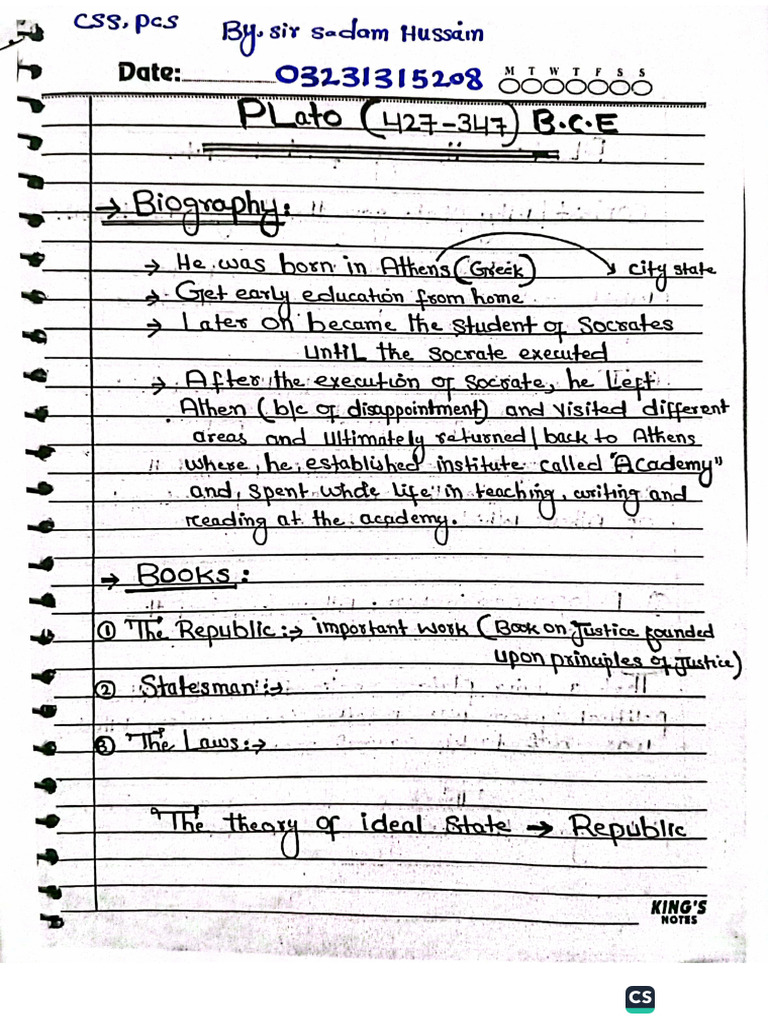 CSS, PCS
By, sir Sadam Hussain
Date:
03231315208
M T W T F S S
PLato (427-347) B.C.E
→ Biography:
→ He was born in Athens (Greek) city state
→ Get early education from home
→ Later on became the student of Socrates
until the Socrate executed
→ After the execution of Socrate, he left
Athen (b/c of disappointment) and visited different
areas and ultimately returned/back to Athens
where, he, established institute called "Academy"
and, spent whole life in teaching, writing and
reading at the academy.
→ Books:
① The Republic:→ important work (Book on Justice founded
upon principles of Justice)
② Statesman:→
③ The Laws:→
"The theory of ideal State → Republic
KING'S
NOTES
CS